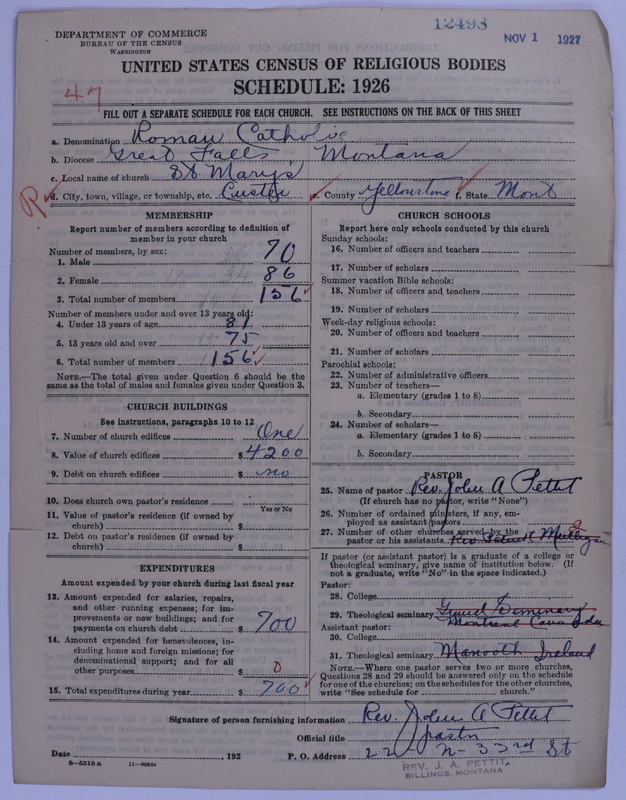 12498
DEPARTMENT OF COMMERCE
BUREAU OF THE CENSUS
WASHINGTON
NOV 1 1927
UNITED STATES CENSUS OF RELIGIOUS BODIES
SCHEDULE: 1926
47
FILL OUT A SEPARATE SCHEDULE FOR EACH CHURCH. SEE INSTRUCTIONS ON THE BACK OF THIS SHEET
a. Denomination Roman Catholic
b. Diocese Great Falls Montana
c. Local name of church St Mary's
R d. City, town, village, or township, etc. Custer e. County Yellowstone f. State Mont
MEMBERSHIP
Report number of members according to definition of
member in your church
Number of members, by sex:
1. Male 70
2. Female 86
3. Total number of members 156
Number of members under and over 13 years old:
4. Under 13 years of age 81
5. 13 years old and over 75
6. Total number of members 156
NOTE.—The total given under Question 6 should be
same as the total of males and females given under Question 3.
CHURCH BUILDINGS
See instructions, paragraphs 10 to 12
7. Number of church edifices One
8. Value of church edifices $ 4200
9. Debt on church edifices $ no
10. Does church own pastor's residence?
Yes or No
11. Value of pastor's residence (if owned by
church) $
12. Debt on pastor's residence (if owned by
church) $
EXPENDITURES
Amount expended by your church during last fiscal year
13. Amount expended for salaries, repairs,
and other running expenses; for im-
provements or new buildings; and for
payments on church debt $ 700
14. Amount expended for benevolences, in-
cluding home and foreign missions; for
denominational support; and for all
other purposes $ 0
15. Total expenditures during year $ 700
CHURCH SCHOOLS
Report here only schools conducted by this church
Sunday schools:
16. Number of officers and teachers
17. Number of scholars
Summer vacation Bible schools:
18. Number of officers and teachers
19. Number of scholars
Week-day religious schools:
20. Number of officers and teachers
21. Number of scholars
Parochial schools:
22. Number of administrative officers
23. Number of teachers—
a. Elementary (grades 1 to 8)
b. Secondary
24. Number of scholars—
a. Elementary (grades 1 to 8)
b. Secondary
PASTOR
25. Name of pastor Rev. John A Pettit
(If church has no pastor, write "None")
26. Number of ordained ministers, if any, em-
ployed as assistant pastors
27. Number of other churches served by the
pastor or his assistants. Rev Mulligan
If pastor (or assistant pastor) is a graduate of a college or
theological seminary, give name of institution below. (If
not a graduate, write "No" in the space indicated.)
Pastor:
28. College
29. Theological seminary Grand Seminary
Montreal Canada
Assistant pastor:
30. College
31. Theological seminary Manooth Ireland
NOTE.—Where one pastor serves two or more churches,
Questions 28 and 29 should be answered only on the schedule
for one of the churches; on the schedules for the other churches,
write "See schedule for church."
Signature of person furnishing information Rev. John A Pettit
Official title pastor
Date , 192 P. O. Address 22 N-33rd St
8—5518a
REV. J. A. PETTIT,
BILLINGS, MONTANA